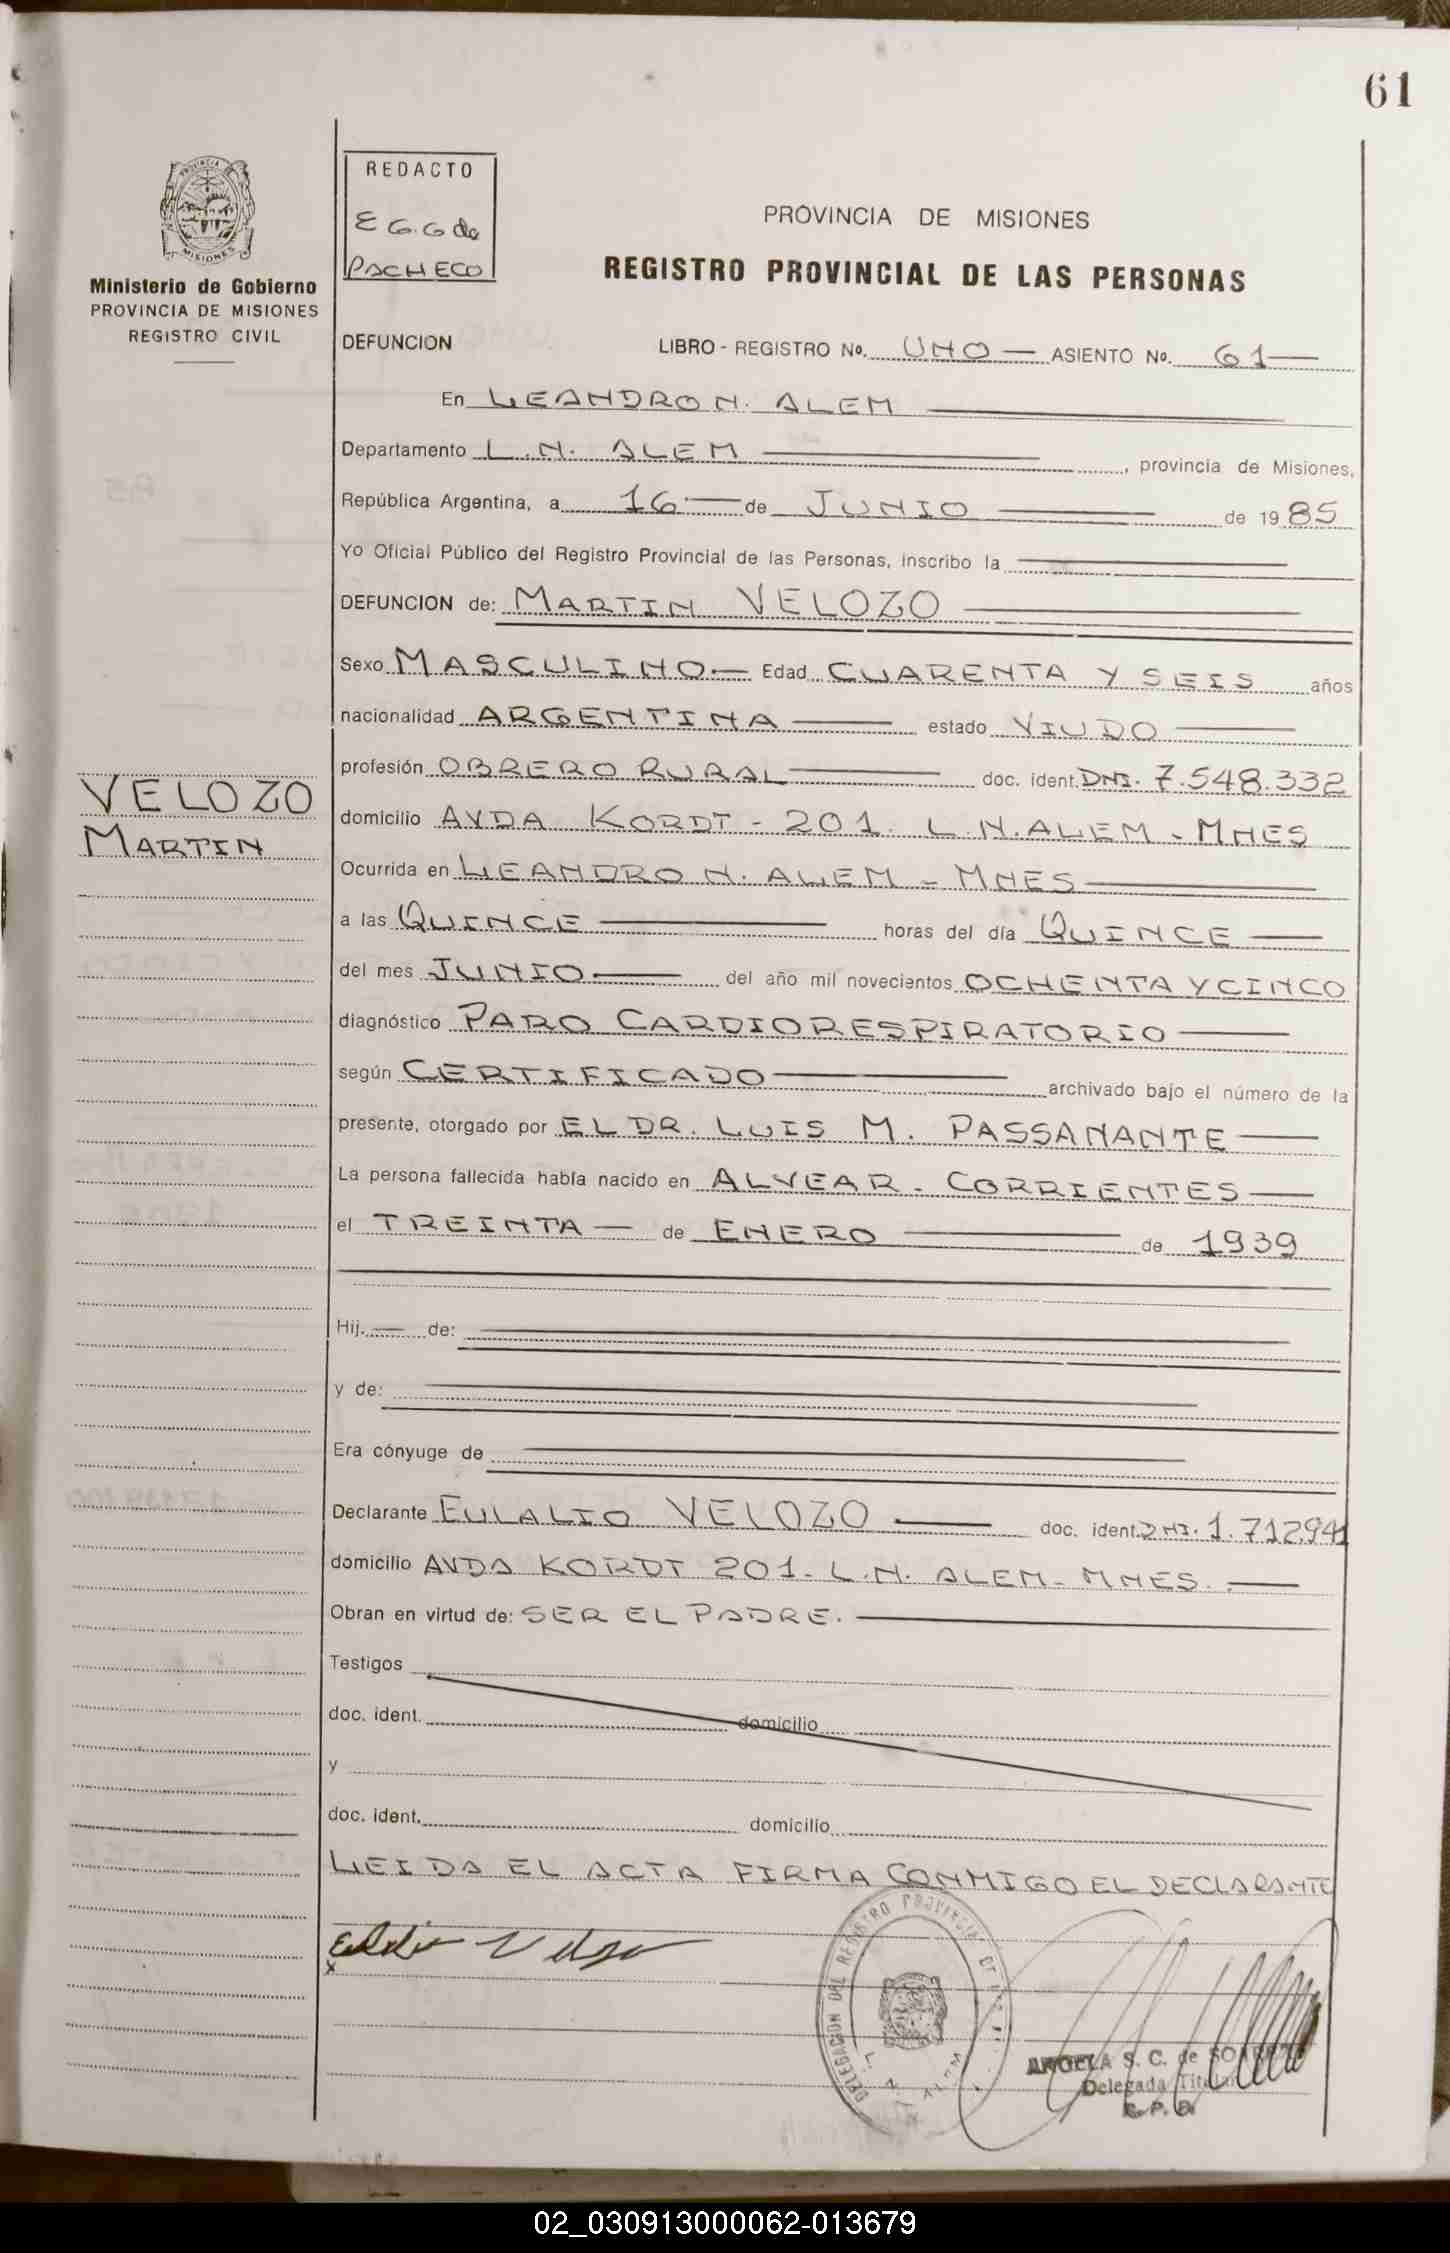 61
PROVINCIA
MISIONES
Ministerio de Gobierno
PROVINCIA DE MISIONES
REGISTRO CIVIL
REDACTO
E G. G de
PACHECO
PROVINCIA DE MISIONES
REGISTRO PROVINCIAL DE LAS PERSONAS
DEFUNCION LIBRO - REGISTRO Nº. UNO — ASIENTO Nº. 61 —
En LEANDRO N. ALEM
Departamento L. N. ALEM , provincia de Misiones,
República Argentina, a 16 — de JUNIO de 1985
Yo Oficial Público del Registro Provincial de las Personas, inscribo la
DEFUNCION de: MARTIN VELOZO
Sexo MASCULINO — Edad CUARENTA Y SEIS años
nacionalidad ARGENTINA estado VIUDO
profesión OBRERO RURAL doc. ident. DNI. 7.548.332
VELOZO
MARTIN
domicilio AVDA KORDT - 201. L.N. ALEM - MNES
Ocurrida en LEANDRO N. ALEM - MNES
a las QUINCE horas del día QUINCE
del mes JUNIO del año mil novecientos OCHENTA Y CINCO
diagnóstico PARO CARDIORESPIRATORIO
según CERTIFICADO archivado bajo el número de la
presente, otorgado por EL DR. LUIS M. PASSANANTE
La persona fallecida había nacido en ALVEAR - CORRIENTES
el TREINTA — de ENERO de 1939
Hij. — de:
y de:
Era cónyuge de
Declarante EULALIO VELOZO doc. ident. DNI. 1.712.941
domicilio AVDA KORDT 201. L.N. ALEM - MNES.
Obran en virtud de: SER EL PADRE.
Testigos
doc. ident. domicilio
y
doc. ident. domicilio
LEIDA EL ACTA FIRMA CONMIGO EL DECLARANTE
DELEGACION DEL REGISTRO PROVINCIAL DE
L. N. ALEM
ANGELA S. C. de
Delegada Titular
02_030913000062-013679